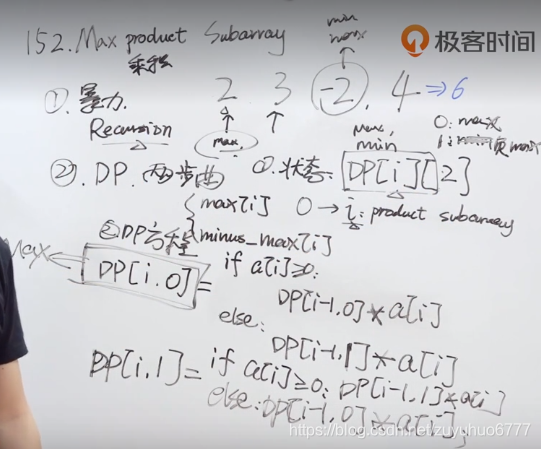 152. Max product Subarray
乘积
极客时间
min
max
① 暴力. 2 3 -2, 4 ⇒ 6
Recursion
max.
max,
min
0: max
1: min 负max
②. DP. 两步曲 ①. 状态: DP[i][2]
max[i] 0 → i: product subarray
②DP方程 minus_max[i]
Max
DP[i,0] = if a[i]≥0:
DP[i-1,0]*a[i]
else:
DP[i-1,1]*a[i]
DP[i,1] = if a[i]≥0: DP[i-1,1]*a[i]
else: DP[i-1,0]*a[i];
https://blog.csdn.net/zuyuhuo6777